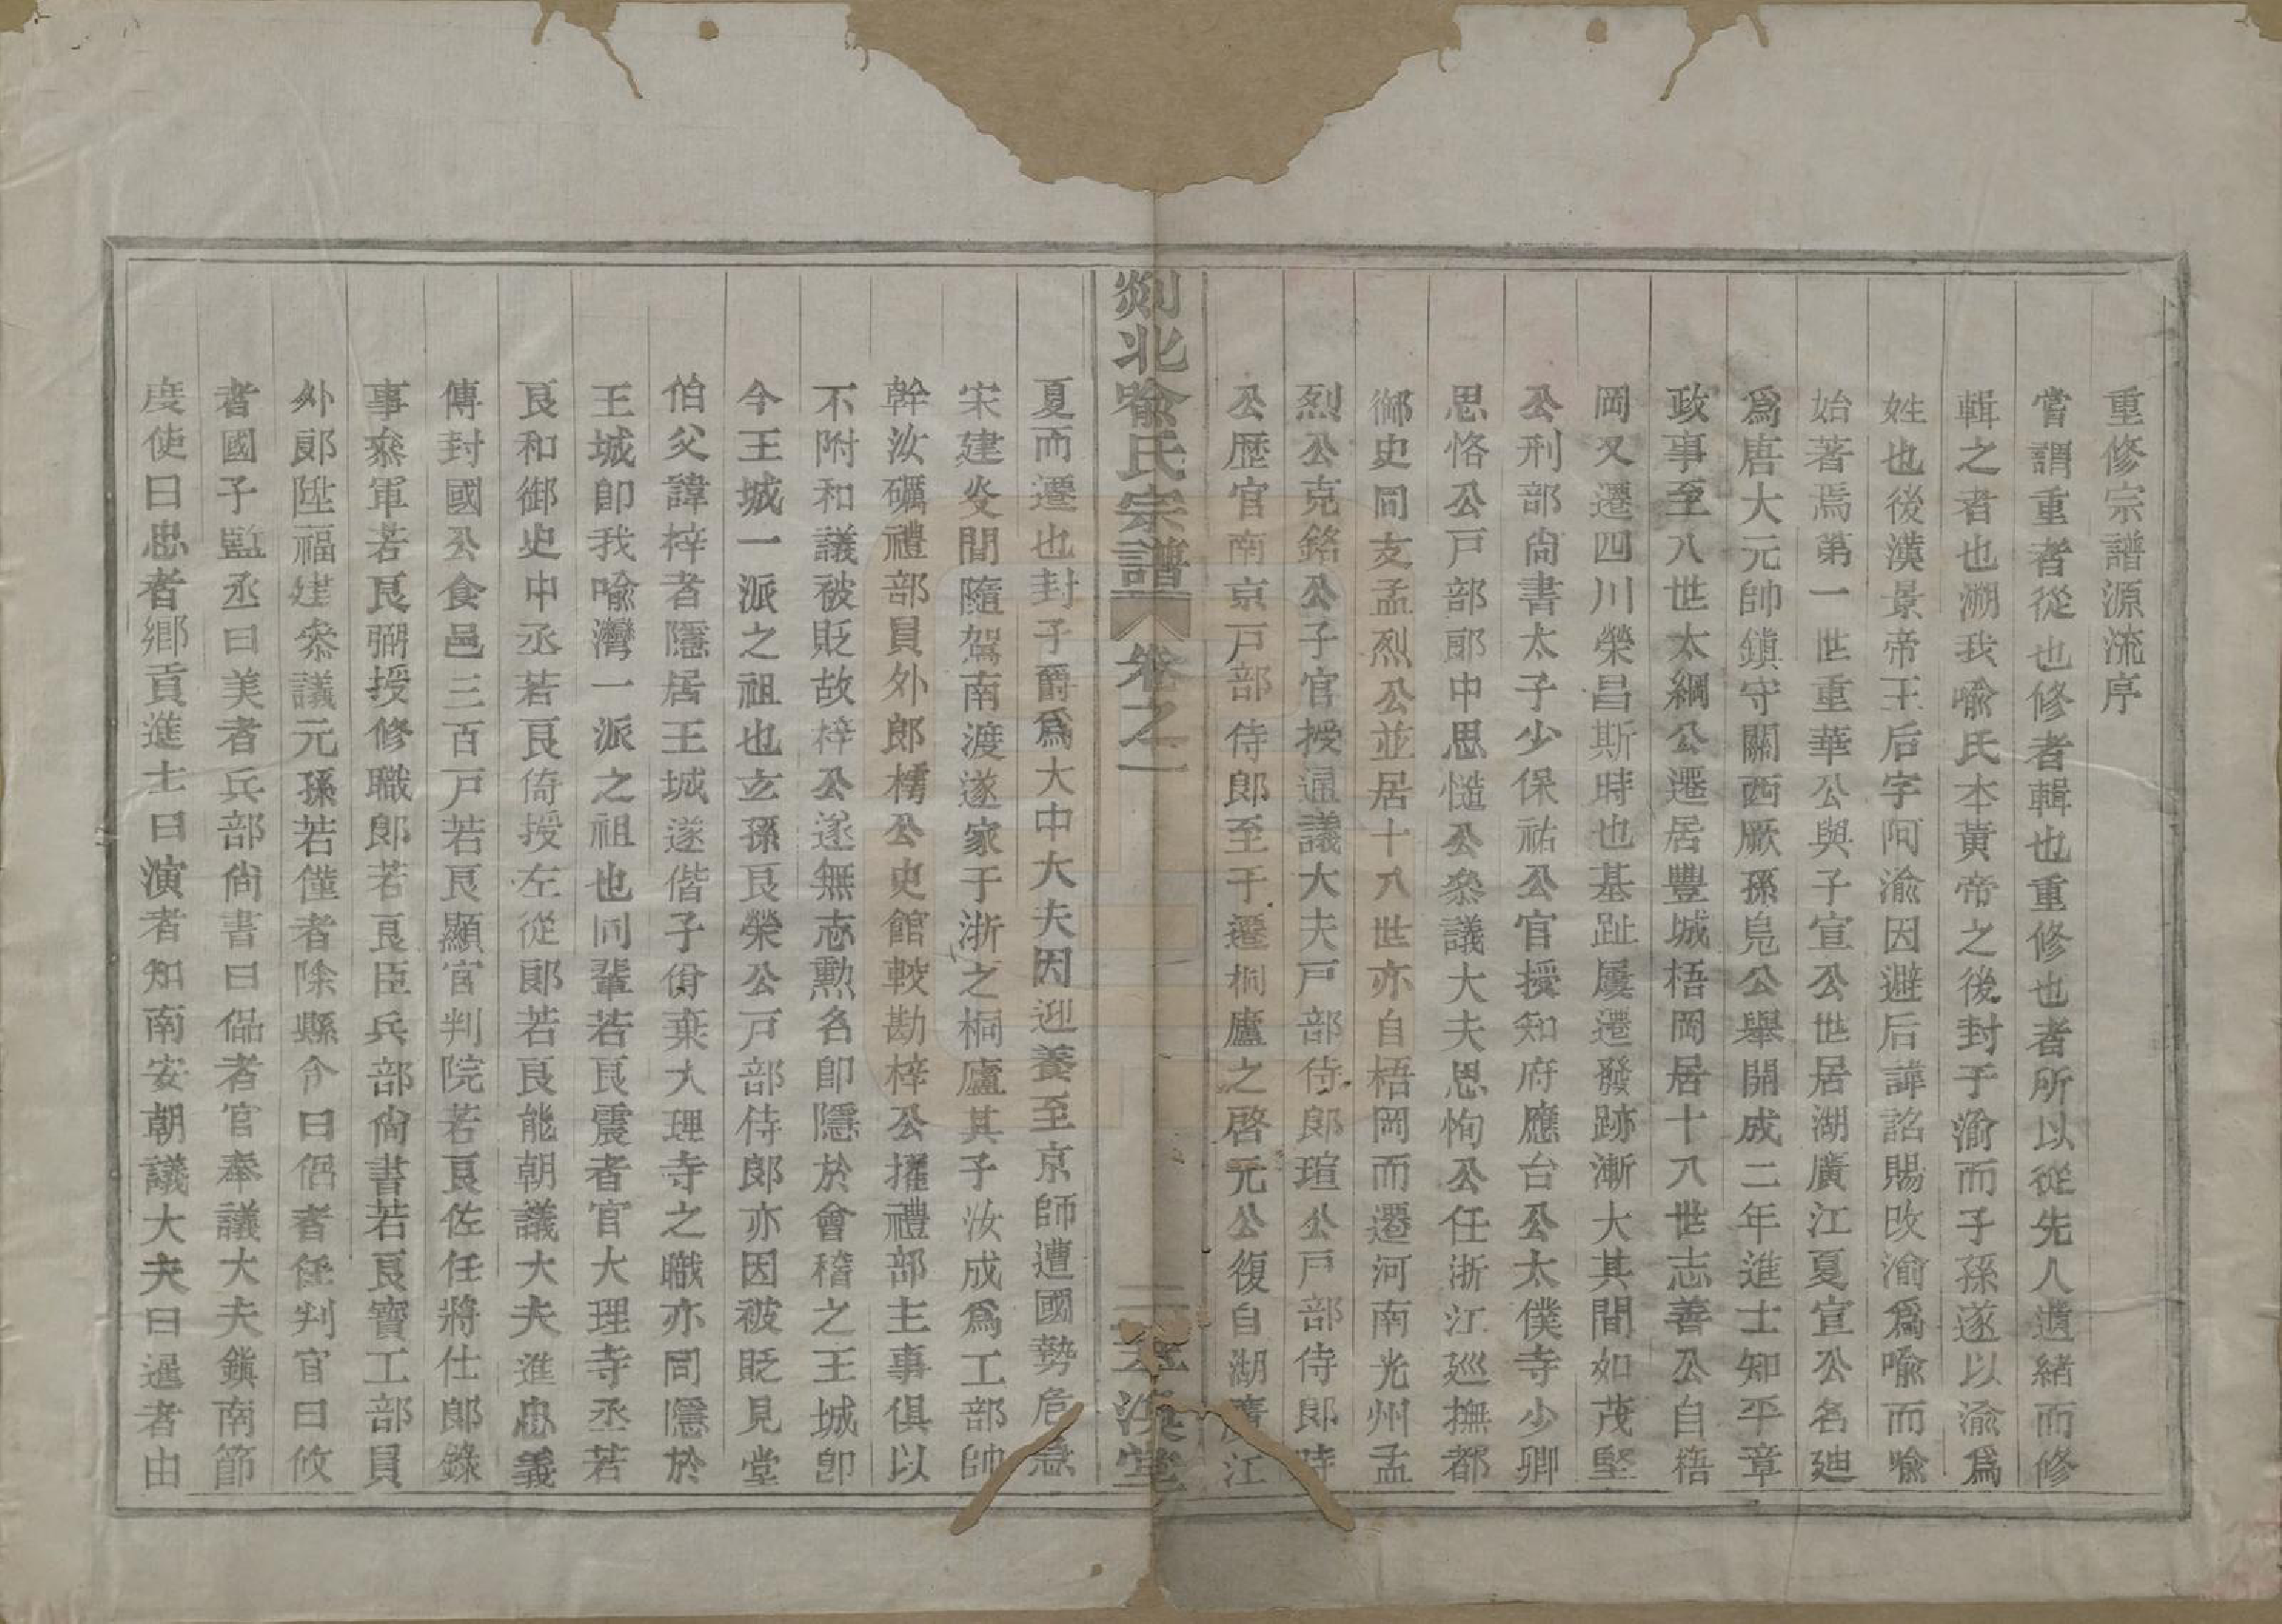 重修宗譜源流序
嘗謂重者從也修者輯也重修也者所以從先人遺緒而修
輯之者也溯我喻氏本黃帝之後封于渝而子孫遂以渝爲
姓也後漢景帝王后字阿渝因避后諱詔賜改渝爲喻而喻
始著焉第一世重華公與子宣公世居湖廣江夏宣公名廸
爲唐大元帥鎮守關西厥孫鳬公舉開成二年進士知平章
政事至八世太綱公遷居豐城梧岡居十八世志善公自梧
岡又遷四川榮昌斯時也基趾屢遷發跡漸大其間如茂堅
公刑部尙書太子少保祐公官授知府應台公太僕寺少卿
思恪公戸部郎中思慥公叅議大夫思恂公任浙江廵撫都
御史同支孟烈公並居十八世亦自梧岡而遷河南光州孟
烈公克銘公子官授通議大夫戸部侍郎瑄公戸部侍郎時
公歷官南京戸部侍郎至于遷桐廬之啓元公復自湖廣江
剡北喻氏宗譜 卷之一 二 漠堂
夏而遷也封子爵爲大中大夫因迎養至京師遭國勢危急
宋建炎間隨駕南渡遂家于浙之桐廬其子汝成爲工部帥
幹汝礪禮部員外郎樗公史館較勘梓公擢禮部主事俱以
不附和議被貶故梓公遂無志勲名卽隱於會稽之王城卽
今王城一派之祖也玄孫良榮公戸部侍郎亦因被貶見堂
伯父諱梓者隱居王城遂偕子俏棄大理寺之職亦同隱於
王城卽我喻灣一派之祖也同輩若良震者官大理寺丞若
良和御史中丞若良倚授左從郎若良能朝議大夫進忠義
傳封國公食邑三百戸若良顯官判院若良佐任將仕郎錄
事叅軍若良弼授修職郎若良臣兵部尙書若良寶工部員
外郎陞福建叅議元孫若僅者除縣令曰侶者任判官曰攸
者國子監丞曰美者兵部尙書曰偘者官奉議大夫鎮南節
度使曰忠者鄕貢進士曰演者知南安朝議大夫曰暹者由